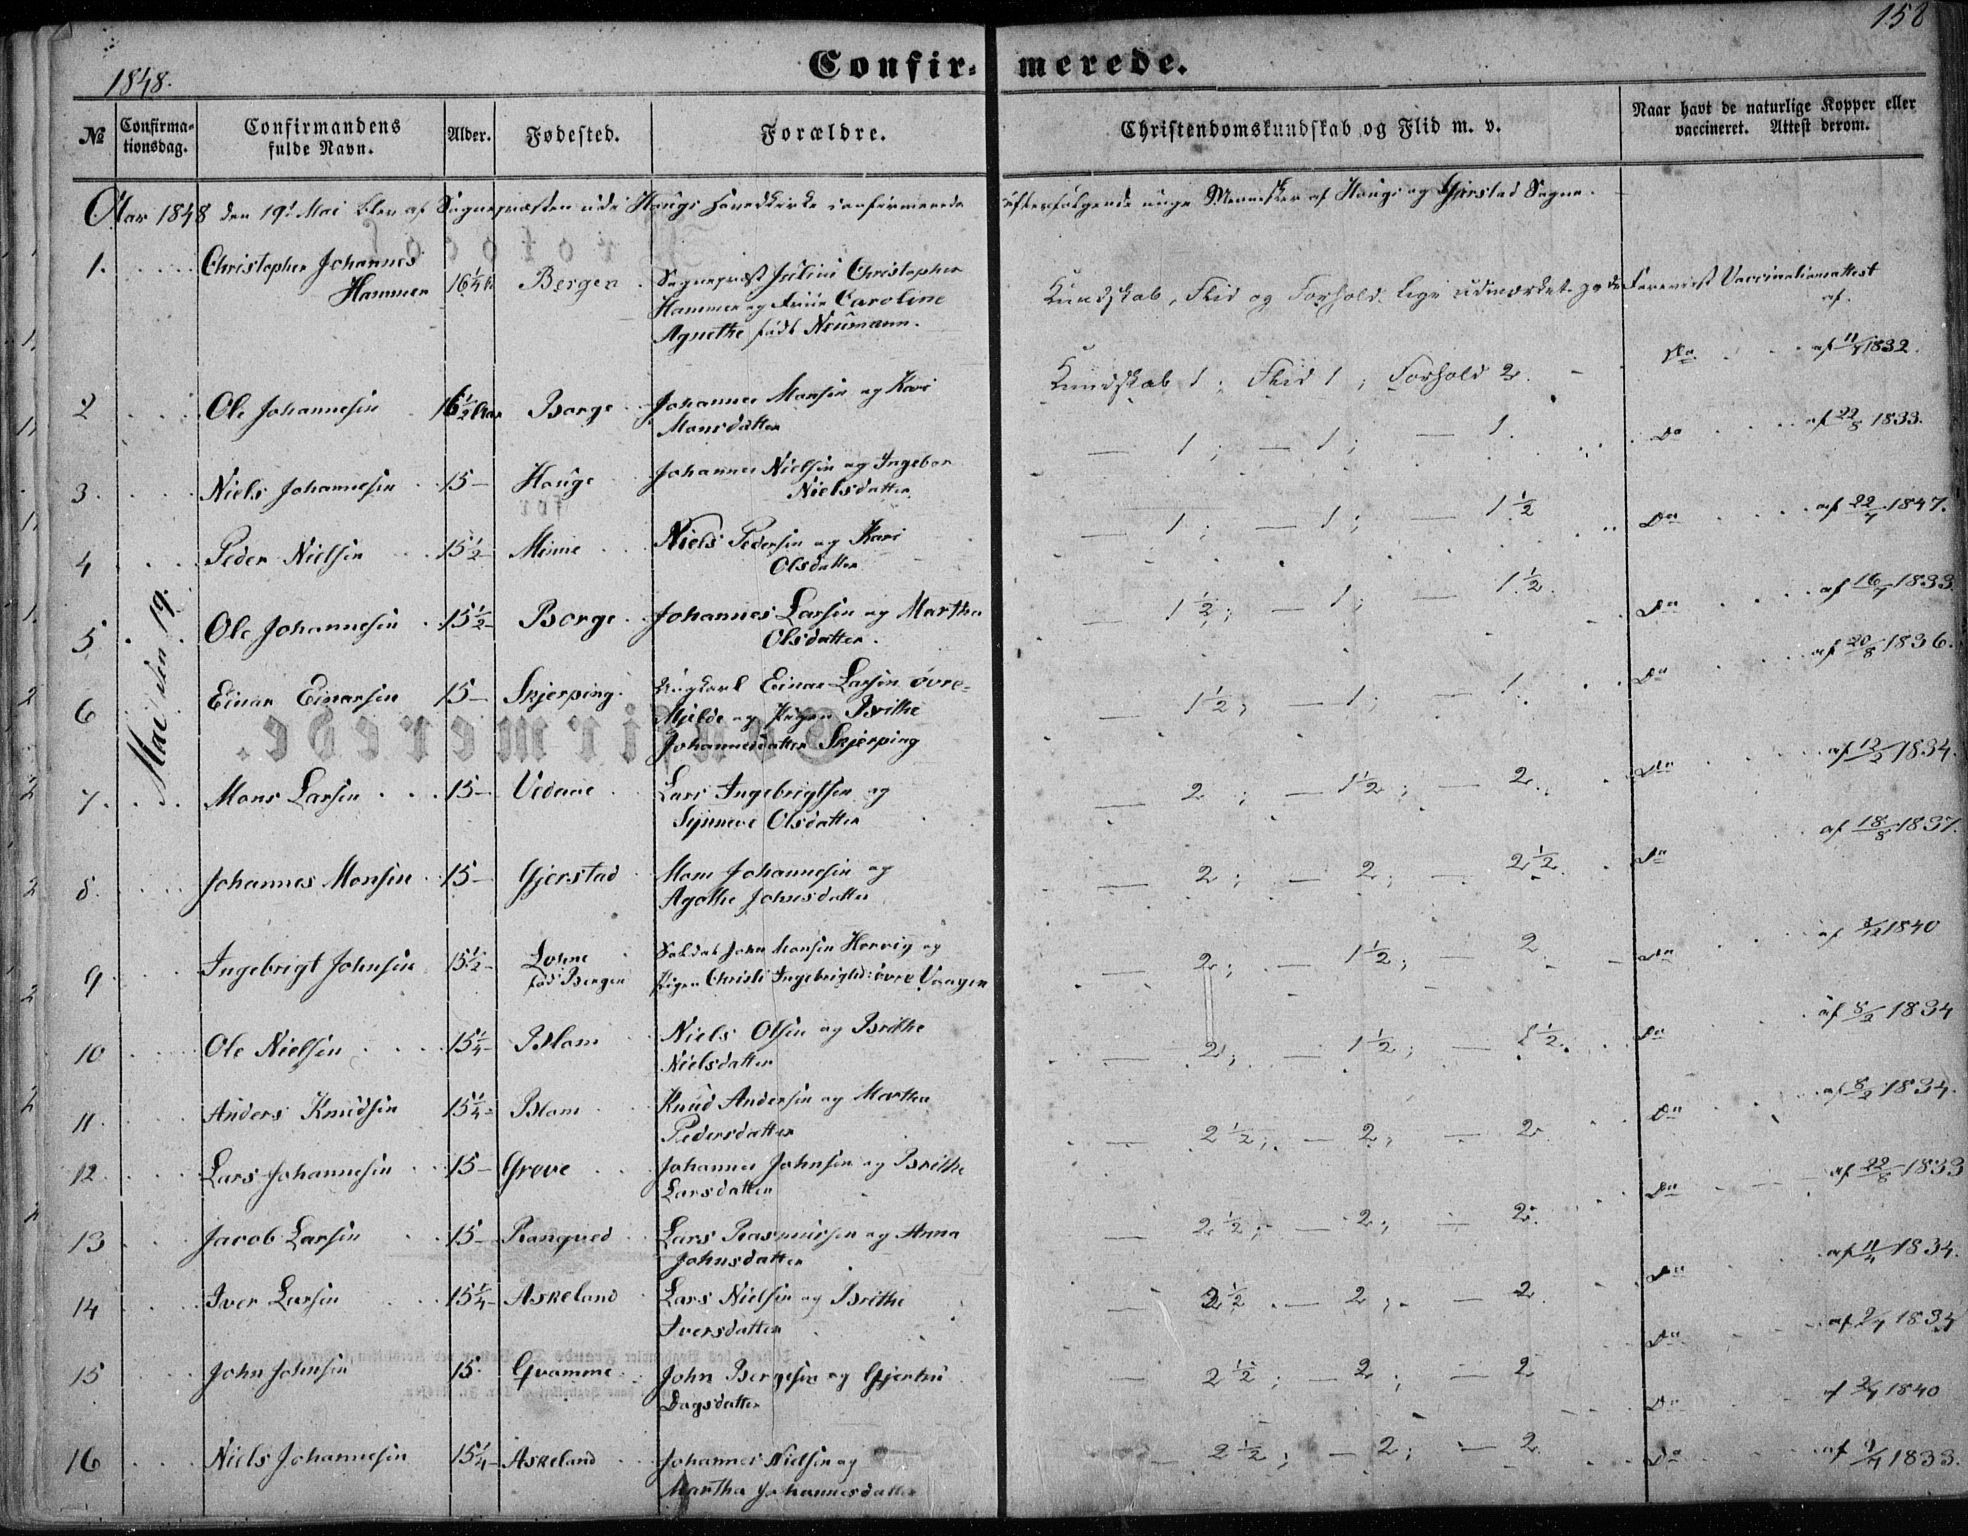 158
1848.
Confir- merede.
№
Confirma-
tionsdag.
Confirmandens
fulde Navn.
Alder.
Fødested.
Forældre.
Christendomskundskab og Flid m. v.
Naar havt de naturlige Kopper eller
vaccineret. Attest derom.
Aar 1848 den 19de Mai blev af Sognepræsten udi Haugs Hovedkirke confirmerede efterfølgende unge Mennesker af Haugs og Gjerstad Sogne.
Mai den 19.
1. Christopher Johannes Bergen Sognepræst Julius Christopher
Hammer 16 1/4 Hammer og Frue Caroline
Agnethe født Neumann.
Kundskab, Flid og Forhold lige udmærket gode Forevist Vaccinationsattest
af
2 Ole Johannesen 16 1/2 Aar Borge Johannes Monsen og Kari
Monsdatter
Kundskab 1; Flid 1; Forhold 2. Do af 11/7 1832.
3. Niels Johannesen 15 – Hauge Johannes Nielsen og Ingebor
Nielsdatter
— 1; — 1; — 1. Do af 22/8 1833.
4 Peder Nielsen 15 1/2 Minne Niels Pedersen og Kari
Olsdatter
— 1; — 1; — 1 1/2 Do af 22/4 1847.
5 Ole Johannesen 15 1/2 – Borge Johannes Larsen og Martha
Olsdatter.
— 1 1/2; — 1; — 1 1/2. Do af 16/7 1833
6 Einar Einarsen 15 – Skjerping. Ungkarl Einar Larsen övre-
Mjelde og Pigen Brithe
Johannesdatter Skjerping
— 1 1/2; — 1; — 1. Do af 20/8 1836.
7. Mons Larsen 15 – Vedaae Lars Ingebrigtsen og
Synneve Olsdatter
— 2; — 1 1/2; — 2. Do af 12/2 1834.
8. Johannes Monsen 15 – Gjerstad Mons Johannesen og
Agathe Johnsdatter
— 2; — 2; — 2 1/2. Do af 18/8 1837.
9 Ingebrigt Johnsen 15 1/2 – Lohne Soldat John Monsen Herrvig og
fød i Bergen Pigen Christi Ingebrigtsd: övre Vaagen
— 2; — 1 1/2; — 2 Do af 1840
10 Ole Nielsen 15 1/4 – Blom Niels Olsen og Brithe
Nielsdatter
— 2; — 1 1/2; — 1/2. Do af 8/2 1834
11. Anders Knudsen 15 1/4 – Blom Knud Andersen og Martha
Pedersdatter
— 2 1/2; — 2; — 2 Do af 8/2 1834.
12. Lars Johannesen 15 – Greve Johannes Johnsen og Brithe
Larsdatter
— 2 1/2; — 2; — 2. Do af 22/8 1833
13 Jacob Larsen 15 – Rangved Lars Rasmussen og Anna
Johnsdatter
— 2 1/2 — 2; — 2. Do af 11/4 1834.
14 Iver Larsen 15 1/4 – Askeland Lars Nielsen og Brithe
Iversdatter
— 2 1/2; — 2; — 2 Do af 1834
15 John Johnsen 15. Gvamme John Bergesen og Gjertru
Dagsdatter
— 2 1/2; — 2; — 2. Do af 1840
16 Niels Johannesen 15 1/4 – Askeland Johannes Nielsen og
Martha Johannesdatter
Do af 1833.